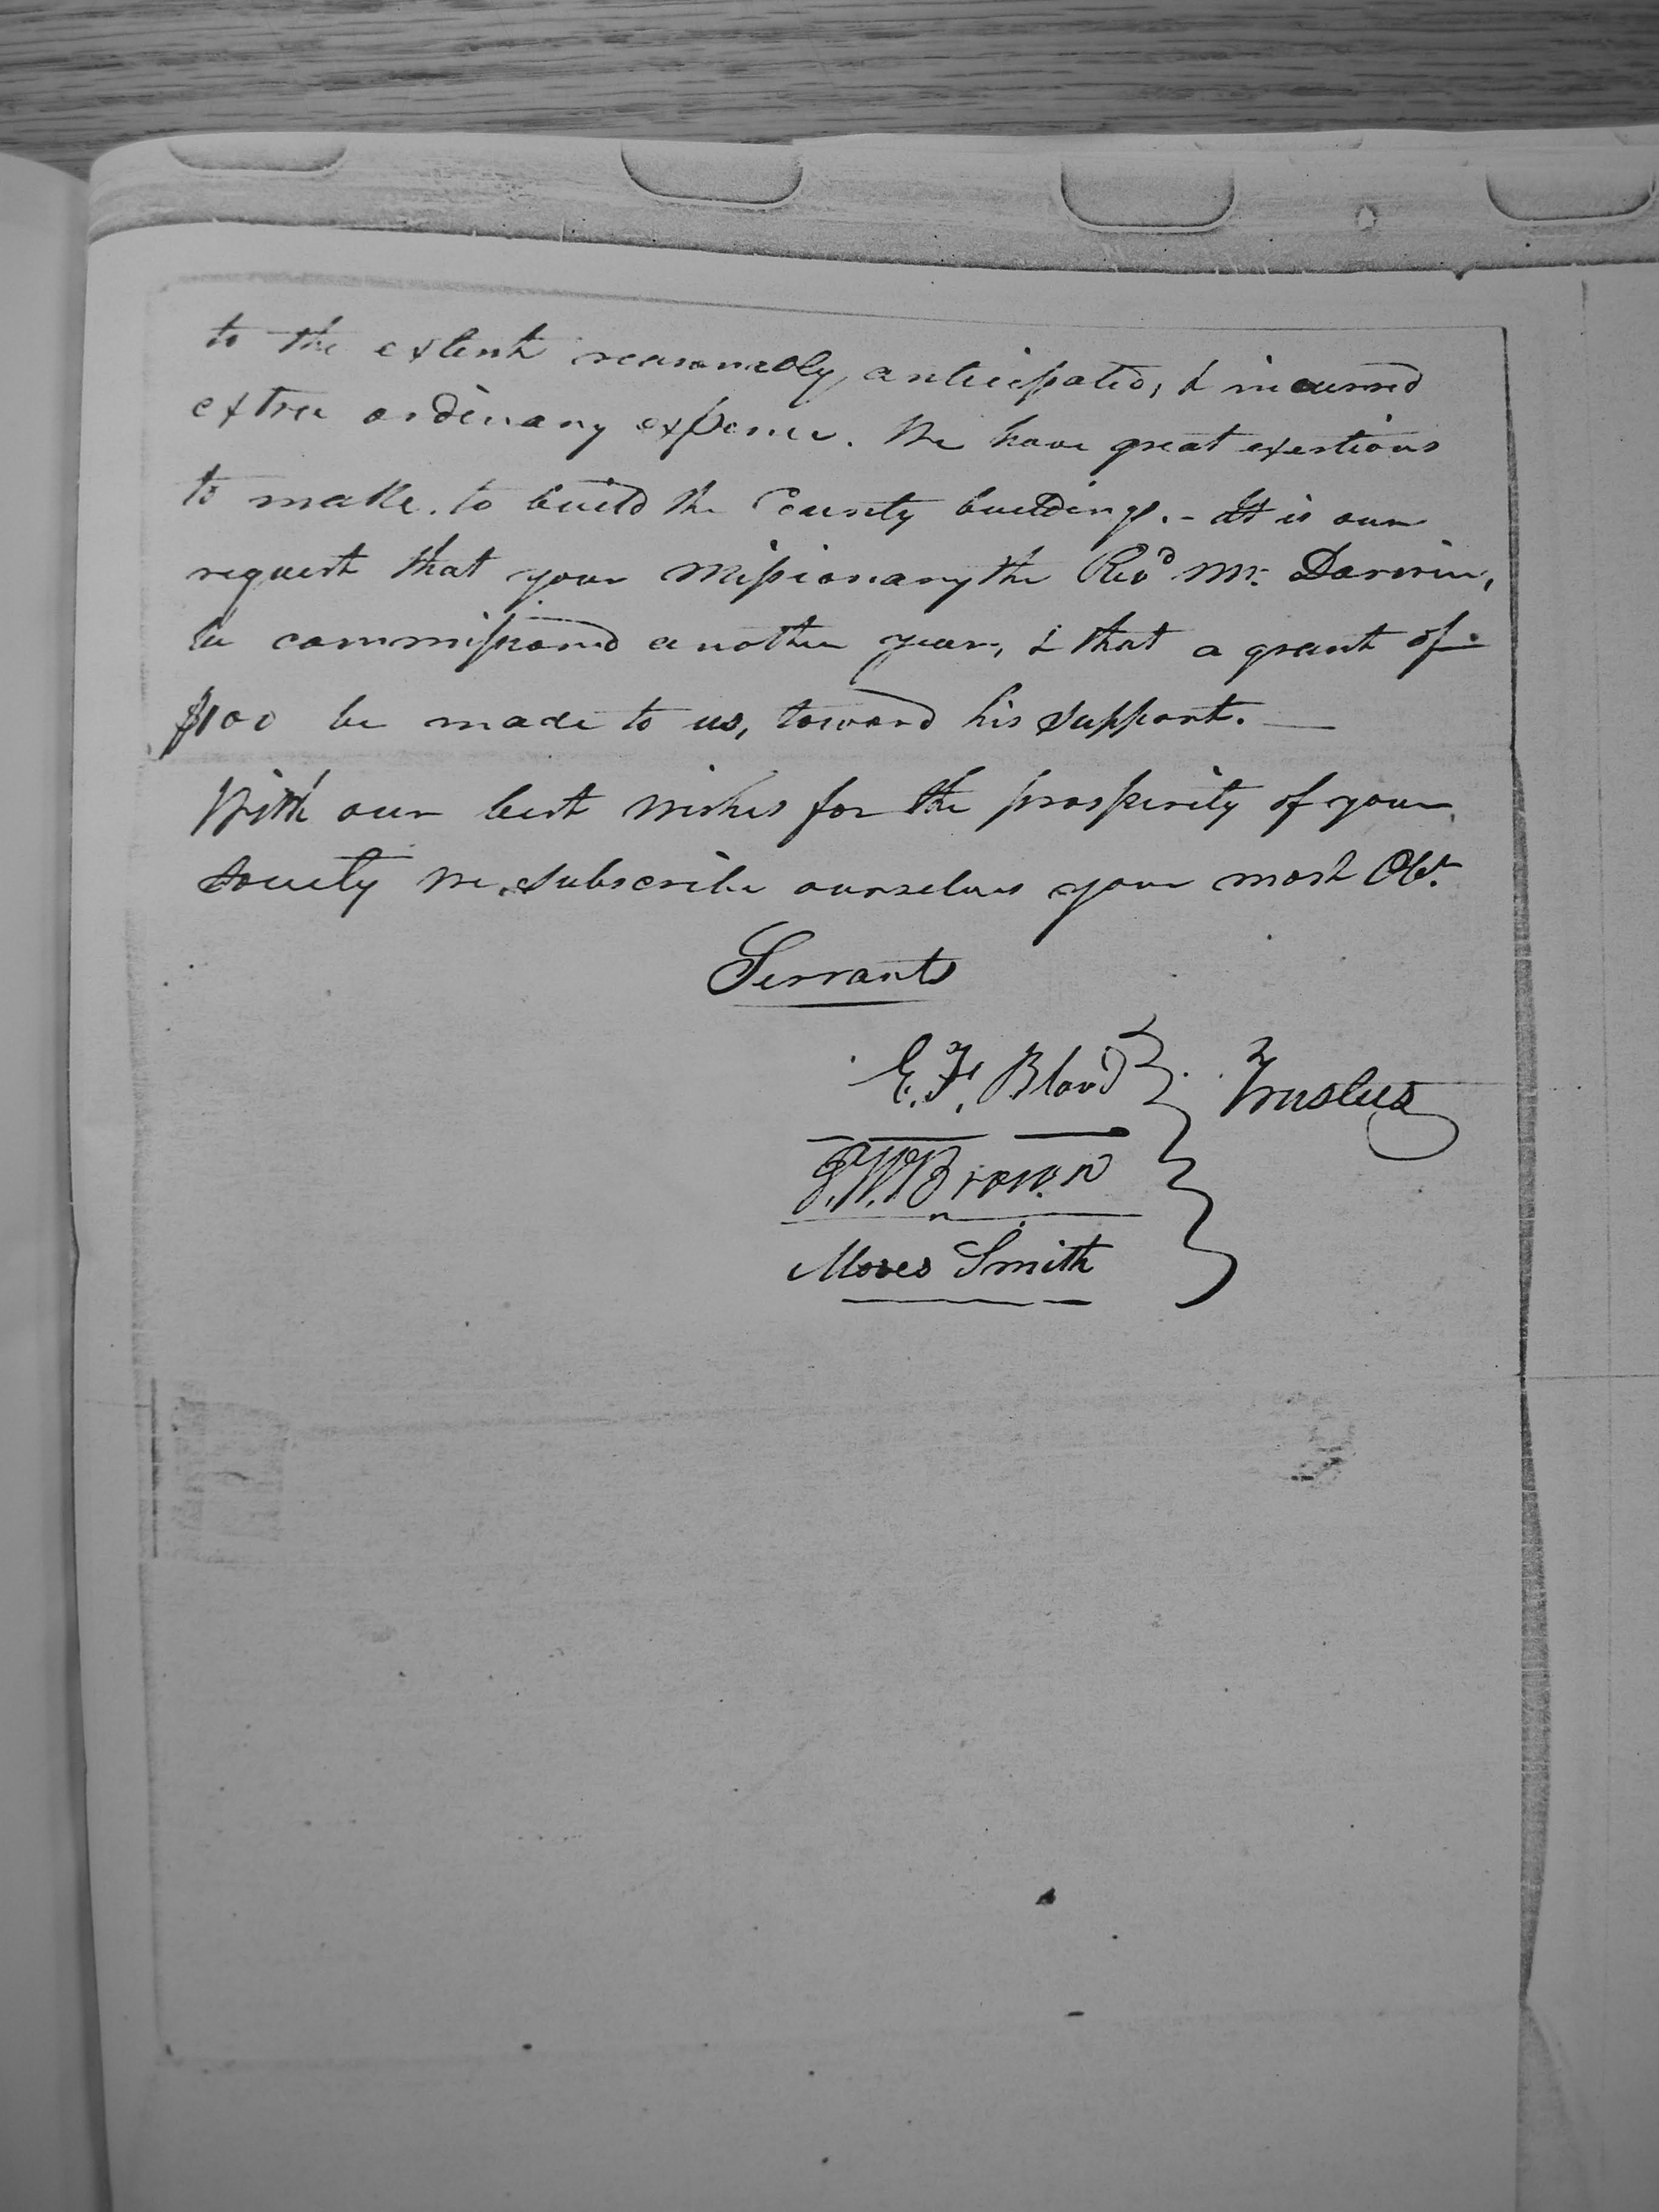 to the extent reasonably, anticipated, & incurred
extra ordinary expense. We have great exertions
to make. to build the County buildings. - It is our
request that your Missionary the Revd Mr. Darwin,
be commissioned another year, & that a grant of
$100 be made to us, toward his support. —
With our best wishes for the prosperity of your
Society we subscribe ourselves your most Obt.
Servants
E. F. Blood
Trustees
Brown
Moses Smith